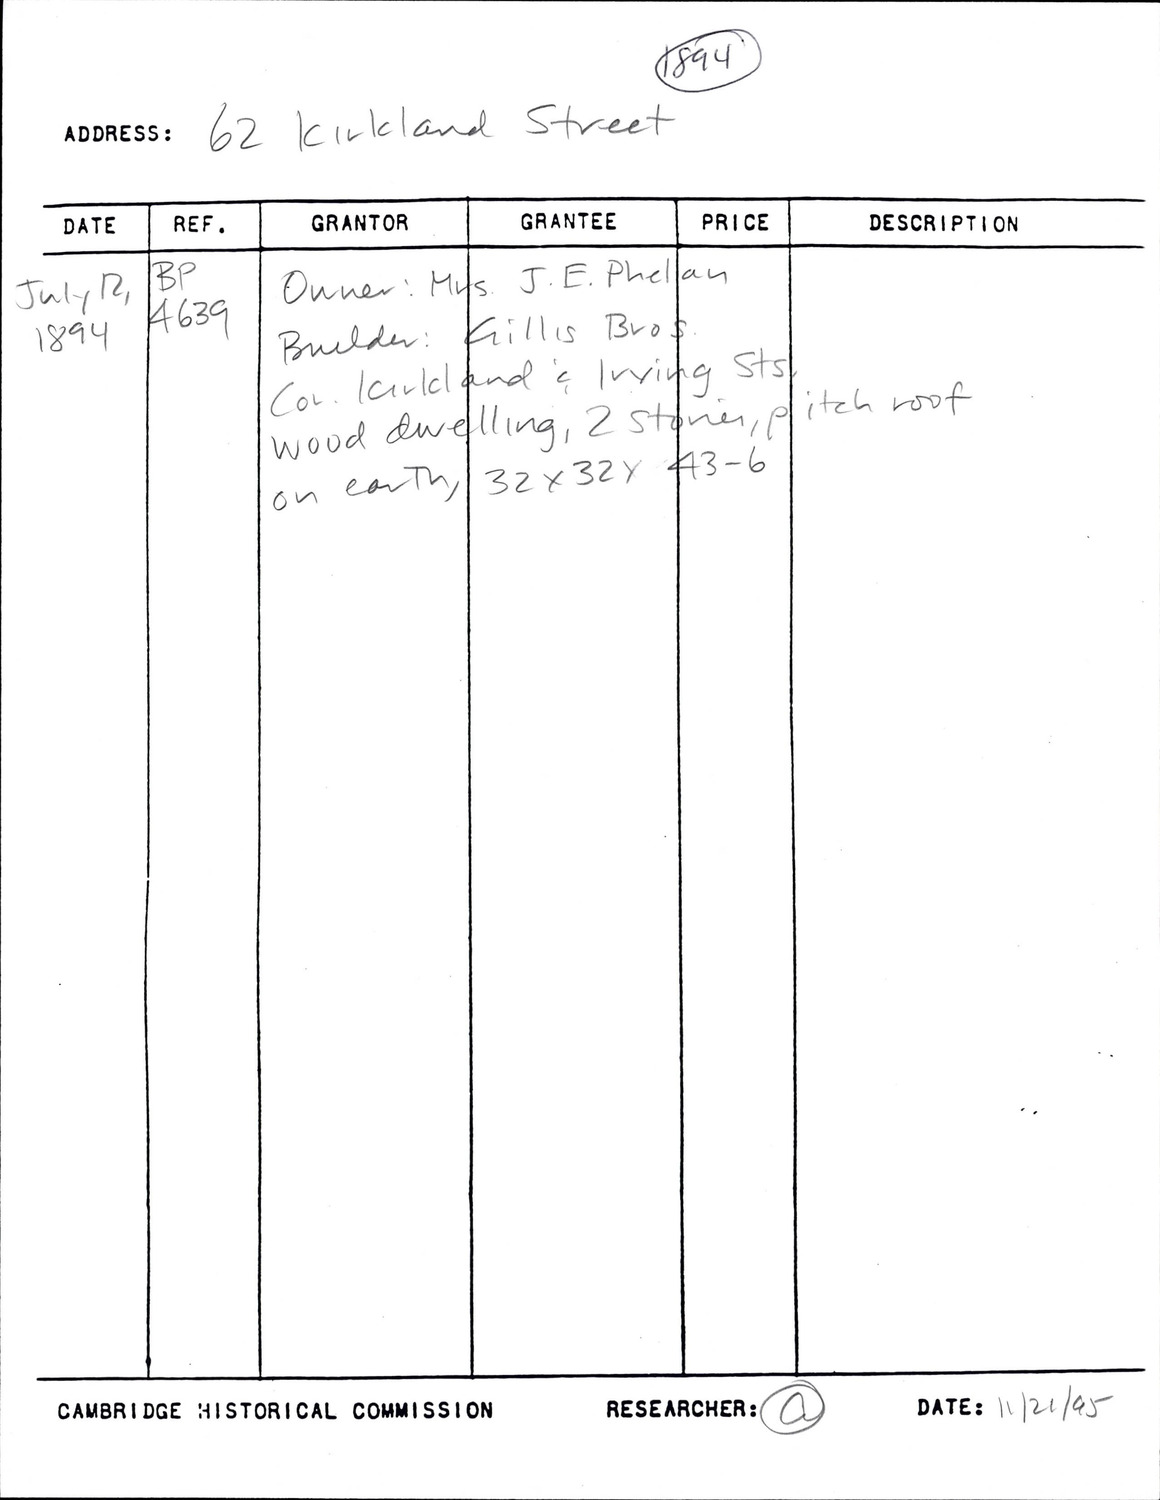 1894
ADDRESS: 62 Kirkland Street
DATE REF. GRANTOR GRANTEE PRICE DESCRIPTION
July 12, BP Owner: Mrs. J. E. Phelan
1894 4639 Builder: Gillis Bros.
Cor. Kirkland & Irving Sts.
wood dwelling, 2 stories, pitch roof
on earth, 32 x 32 x 43-6
CAMBRIDGE HISTORICAL COMMISSION RESEARCHER: a DATE: 11/21/95